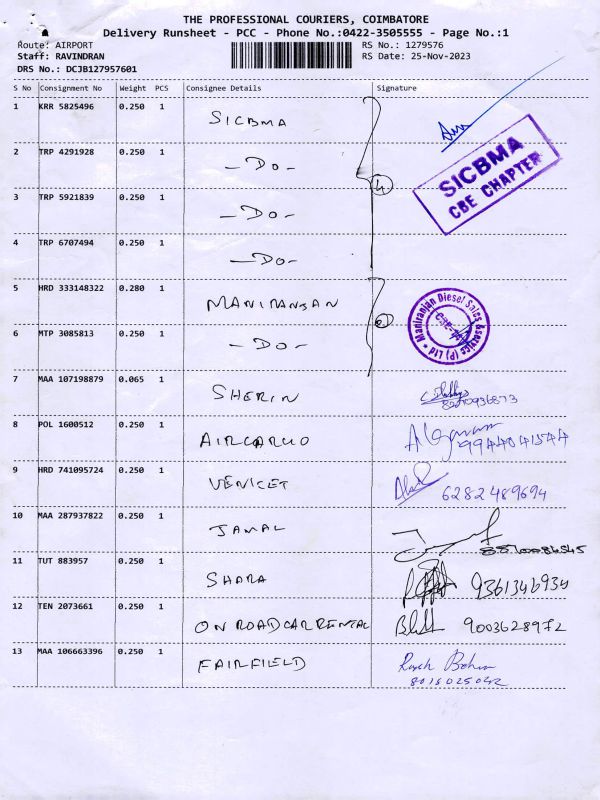 THE PROFESSIONAL COURIERS, COIMBATORE
Delivery Runsheet - PCC - Phone No.:0422-3505555 - Page No.:1
Route: AIRPORT RS No.: 1279576
Staff: RAVINDRAN RS Date: 25-Nov-2023
DRS No.: DCJB127957601
S No Consignment No Weight PCS Consignee Details Signature
1 KRR 5825496 0.250 1 SICBMA
SICBMA
CBE CHAPTER
2 TRP 4291928 0.250 1 -DO-
4
3 TRP 5921839 0.250 1 -DO-
4 TRP 6707494 0.250 1 -DO-
5 HRD 333148322 0.280 1 MANIRANJAN
Maniranjan Diesel Sales &service (P) Ltd
6 MTP 3085813 0.250 1 -DO-
7 MAA 107198879 0.065 1 SHERIN
8 POL 1600512 0.250 1 AIRCARGO 9944041544
9 HRD 741095724 0.250 1 VENICET 6282489694
10 MAA 287937822 0.250 1 JAMAL
11 TUT 883957 0.250 1 SHARA 9361346934
12 TEN 2073661 0.250 1 ONROADCARRENTAL 9003628972
13 MAA 106663396 0.250 1 FAIRFIELD